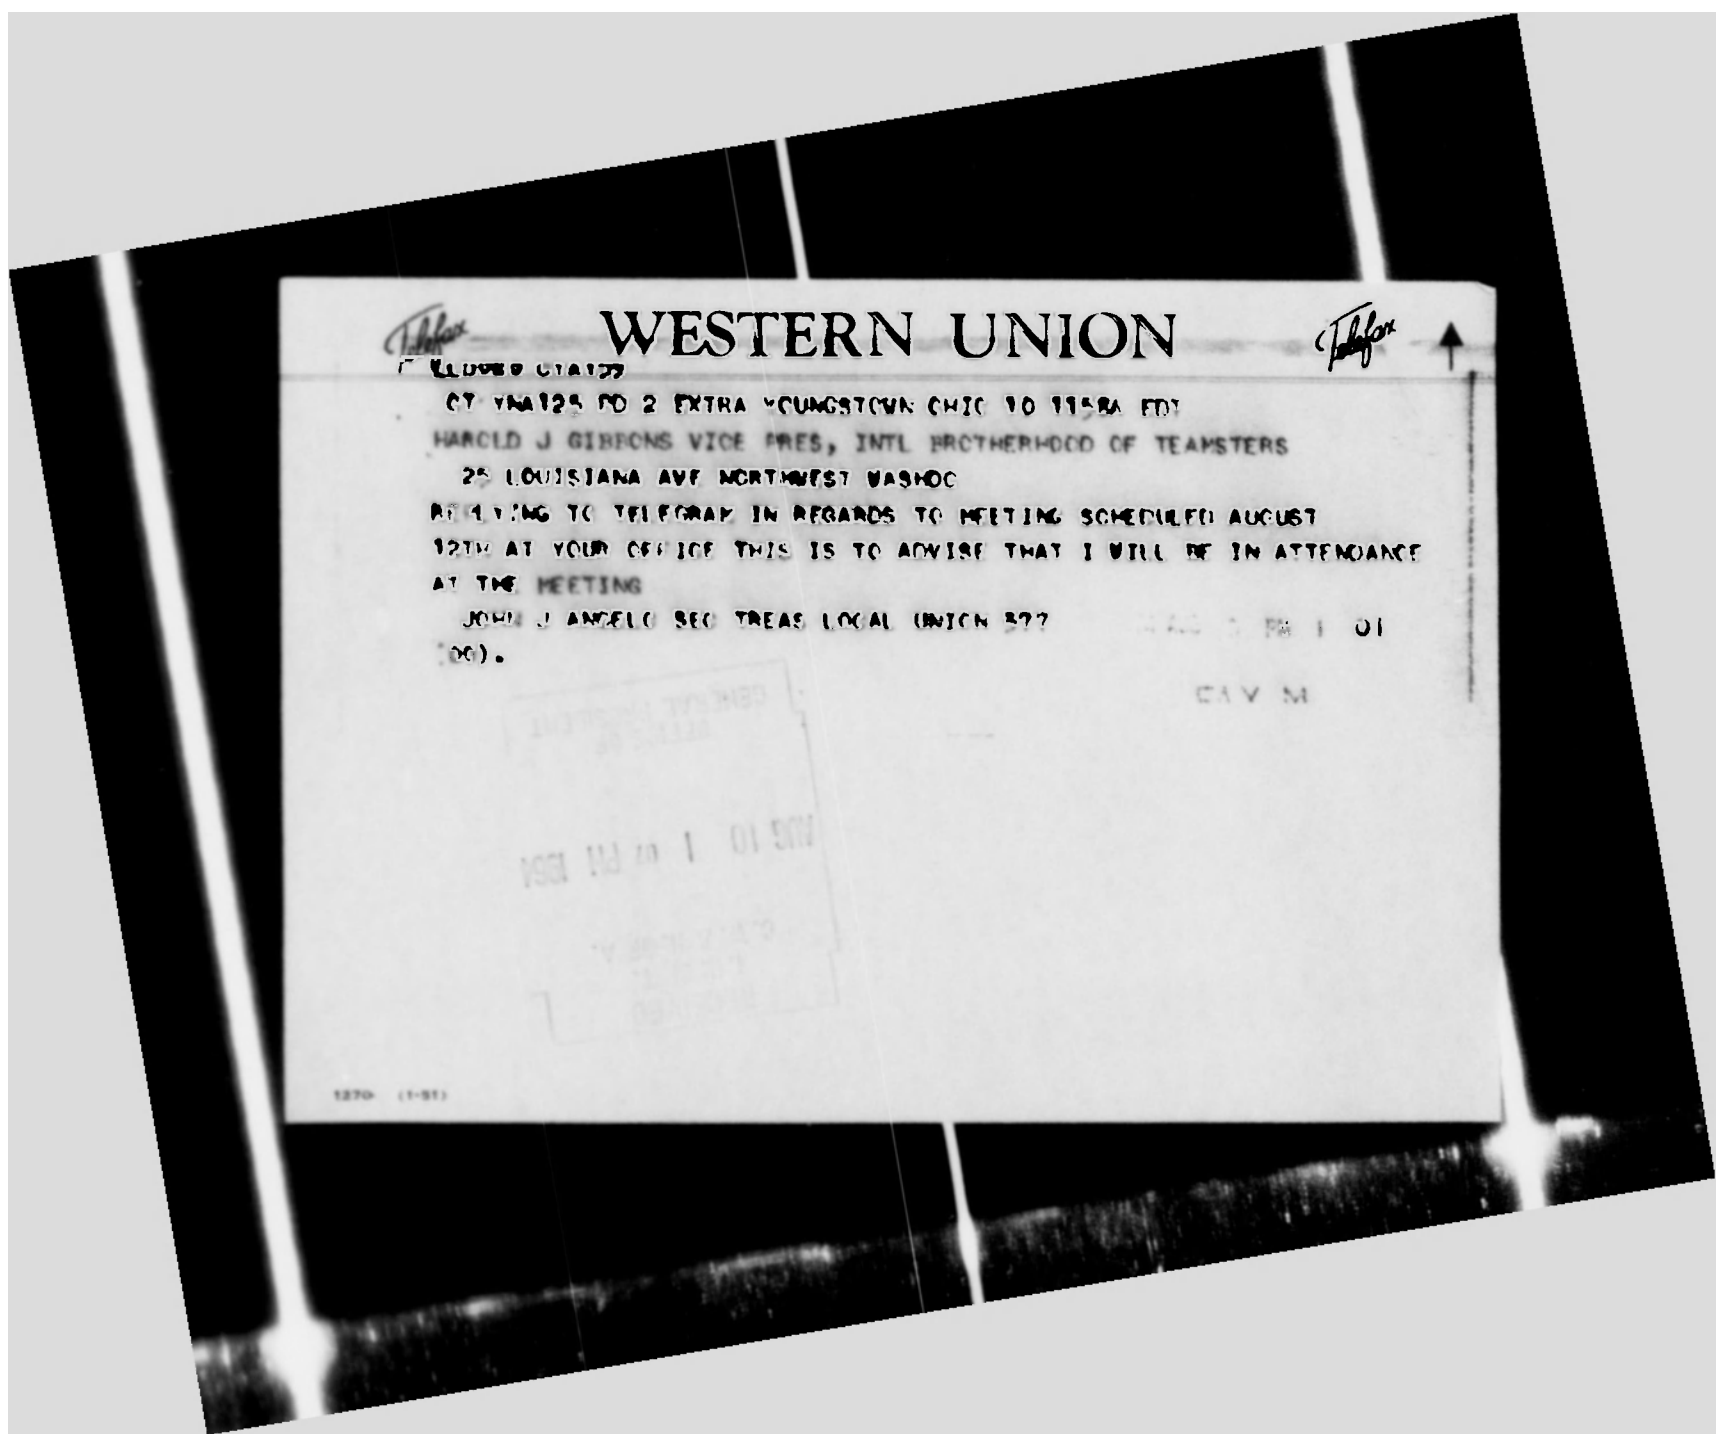 Telefax WESTERN UNION Telefax
CT YNA125 PD 2 EXTRA YOUNGSTOWN OHIO 10 1158A EDT
HAROLD J GIBBONS VICE PRES, INTL BROTHERHOOD OF TEAMSTERS
25 LOUISIANA AVE NORTHWEST WASHDC
REPLYING TO TELEGRAM IN REGARDS TO MEETING SCHEDULED AUGUST
12TH AT YOUR OFFICE THIS IS TO ADVISE THAT I WILL BE IN ATTENDANCE
AT THE MEETING
JOHN J ANGELO SEC TREAS LOCAL UNION 377
PM 1 01
GENERAL PRESIDENT
OFFICE OF
AUG 10 1 07 PM 1964
RECEIVED
1270 (1-51)